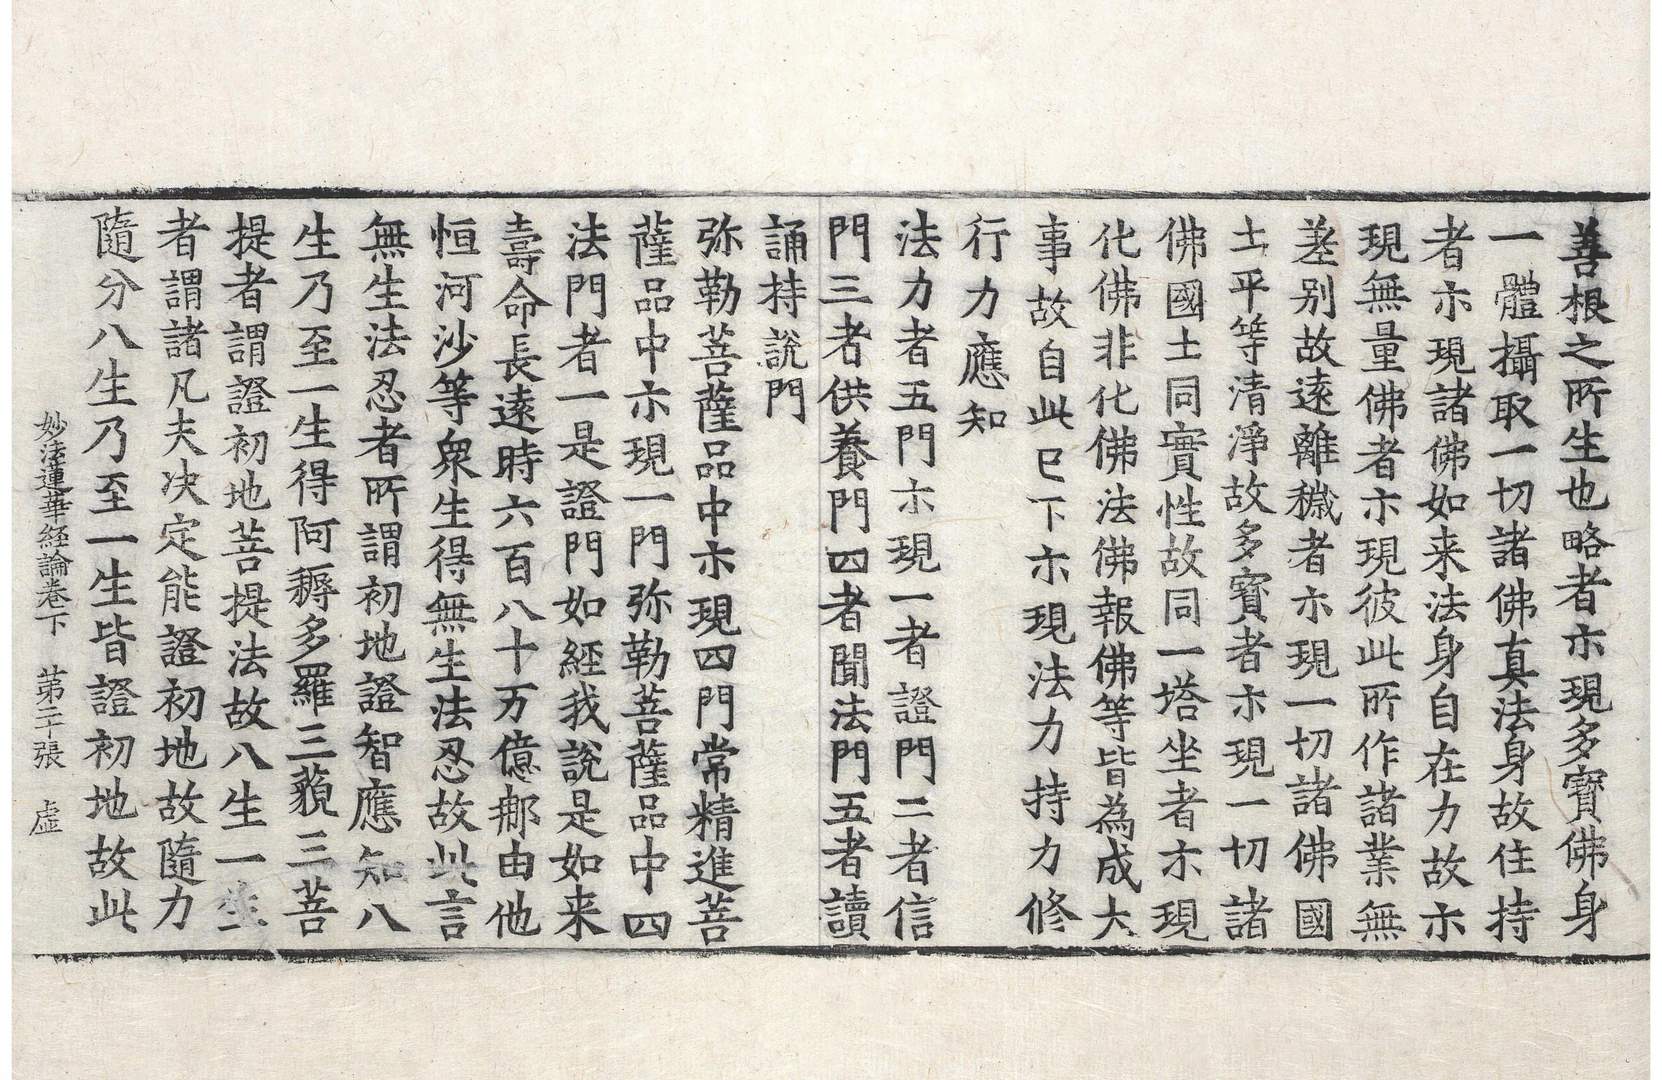 善根之所生也略者示現多寶佛身
一體攝取一切諸佛真法身故住持
者示現諸佛如来法身自在力故示
現無量佛者示現彼此所作諸業無
差别故遠離穢者示現一切諸佛國
土平等清淨故多寳者示現一切諸
佛國土同實性故同一塔坐者示現
化佛非化佛法佛報佛等皆為成大
事故自此已下示現法力持力修
行力應知
法力者五門示現一者證門二者信
門三者供養門四者聞法門五者讀
誦持說門
弥勒菩薩品中示現四門常精進菩
薩品中示現一門弥勒菩薩品中四
法門者一是證門如經我說是如来
壽命長遠時六百八十万億𨙻由他
恒河沙等衆生得無生法忍故此言
無生法忍者所謂初地證智應知八
生乃至一生得阿耨多羅三藐三菩
提者謂證初地菩提法故八生一生
者謂諸凡夫决定能證初地故隨力
隨分八生乃至一生皆證初地故此
妙法蓮華経論卷下 第二十張 虛